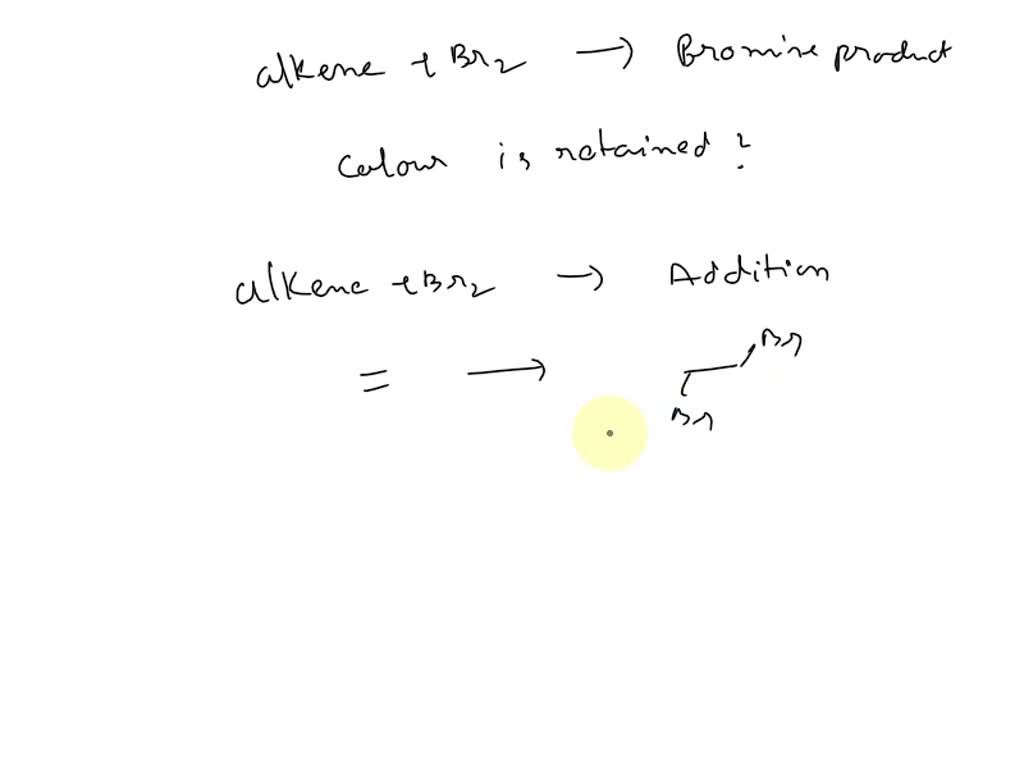 alkene + Br2 → Bromine product
Colour is retained?
alkene + Br2 → Addition
= → Br
Br